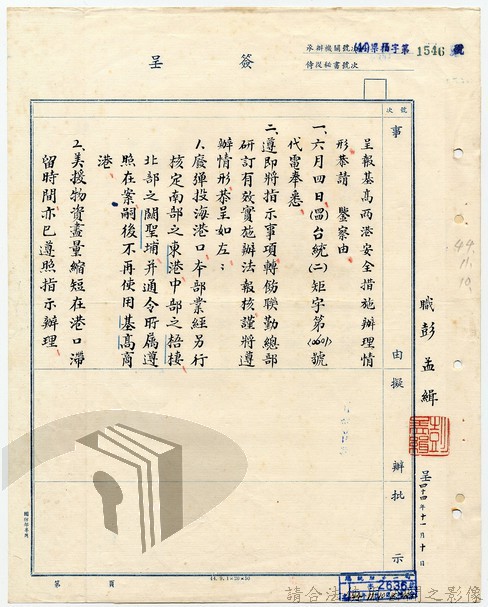 簽呈
承辦機關號次(44)梁福字第1546號
侍從秘書號次
號次
事由
擬辦
批示
呈報基高兩港安全措施辦理情
形恭請 鑒察由
一、六月四日(44)台統(二)矩字第(060)號
代電奉悉
二、遵即將指示事項轉飭聯勤總部
研訂有效實施辦法報核謹將遵
辦情形恭呈如左:
1.廢彈投海港口本部業經另行
核定南部之東港中部之梧棲
北部之關聖埔并通令所屬遵
照在案嗣後不再使用基高商
港
2.美援物資盡量縮短在港口滯
留時間亦已遵照指示辦理
職彭孟緝
呈四十四年十一月十日
44.11.10.
第 頁
2636